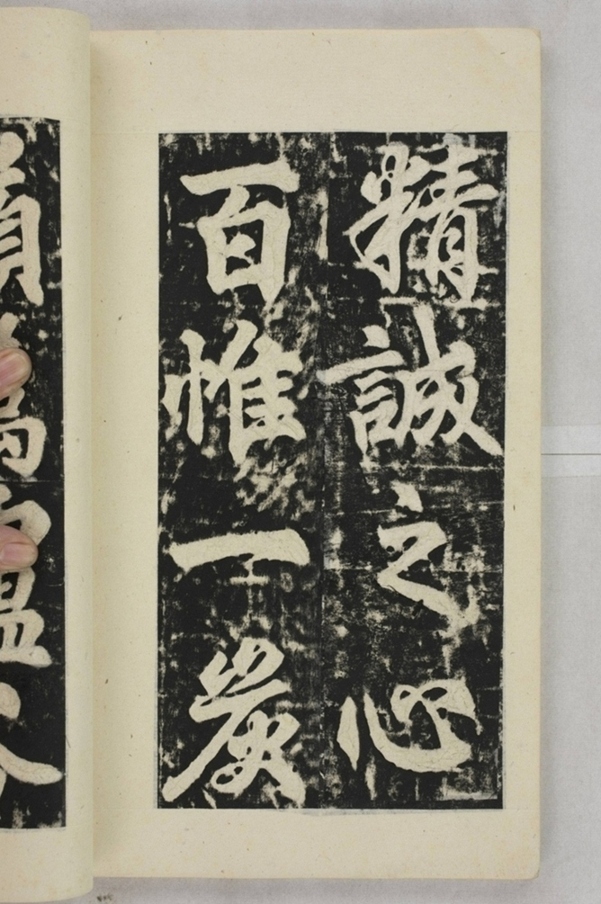 精誠之心
百惟一炭